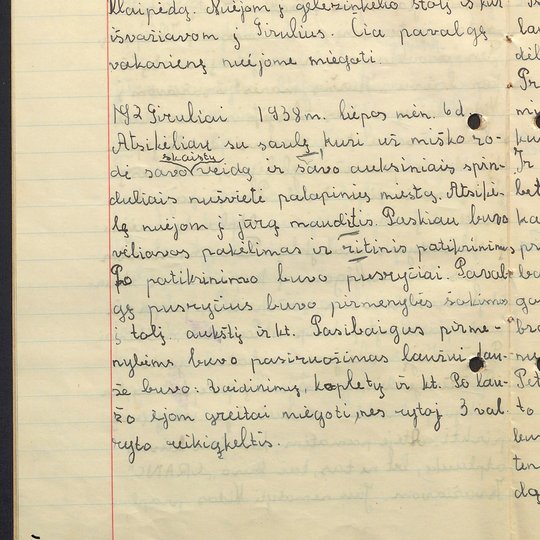 Klaipėdą. Nuėjom į geležinkelio stotį iš kur
išvažiavom į Girulius. Čia pavalgę
vakarienę nuėjome miegoti.
Giruliai 1938 m. liepos mėn. 6 d.
Atsikėliau su saulę, kuri už miško ro-
skaistų
dė savo veidą ir savo auksiniais spin-
duliais nušvietė palapinių miestą. Atsikė-
lę nuėjom į jūrą mauditis. Paskiau buvo
vėliavos pakėlimas ir ritinis patikrinimas
Po patikrinimo buvo pusryčiai. Paval-
gę pusryčius buvo pirmenybės šokimas
į tolį, aukštį ir kt. Pasibaigus pirme-
nybėms buvo pasiruošimas laužui. Lau-
že buvo. Vaidinimų, kupletų ir kt. Po lau-
žo ėjom greitai miegoti, nes rytoj 3 val.
ryto reikią keltis.